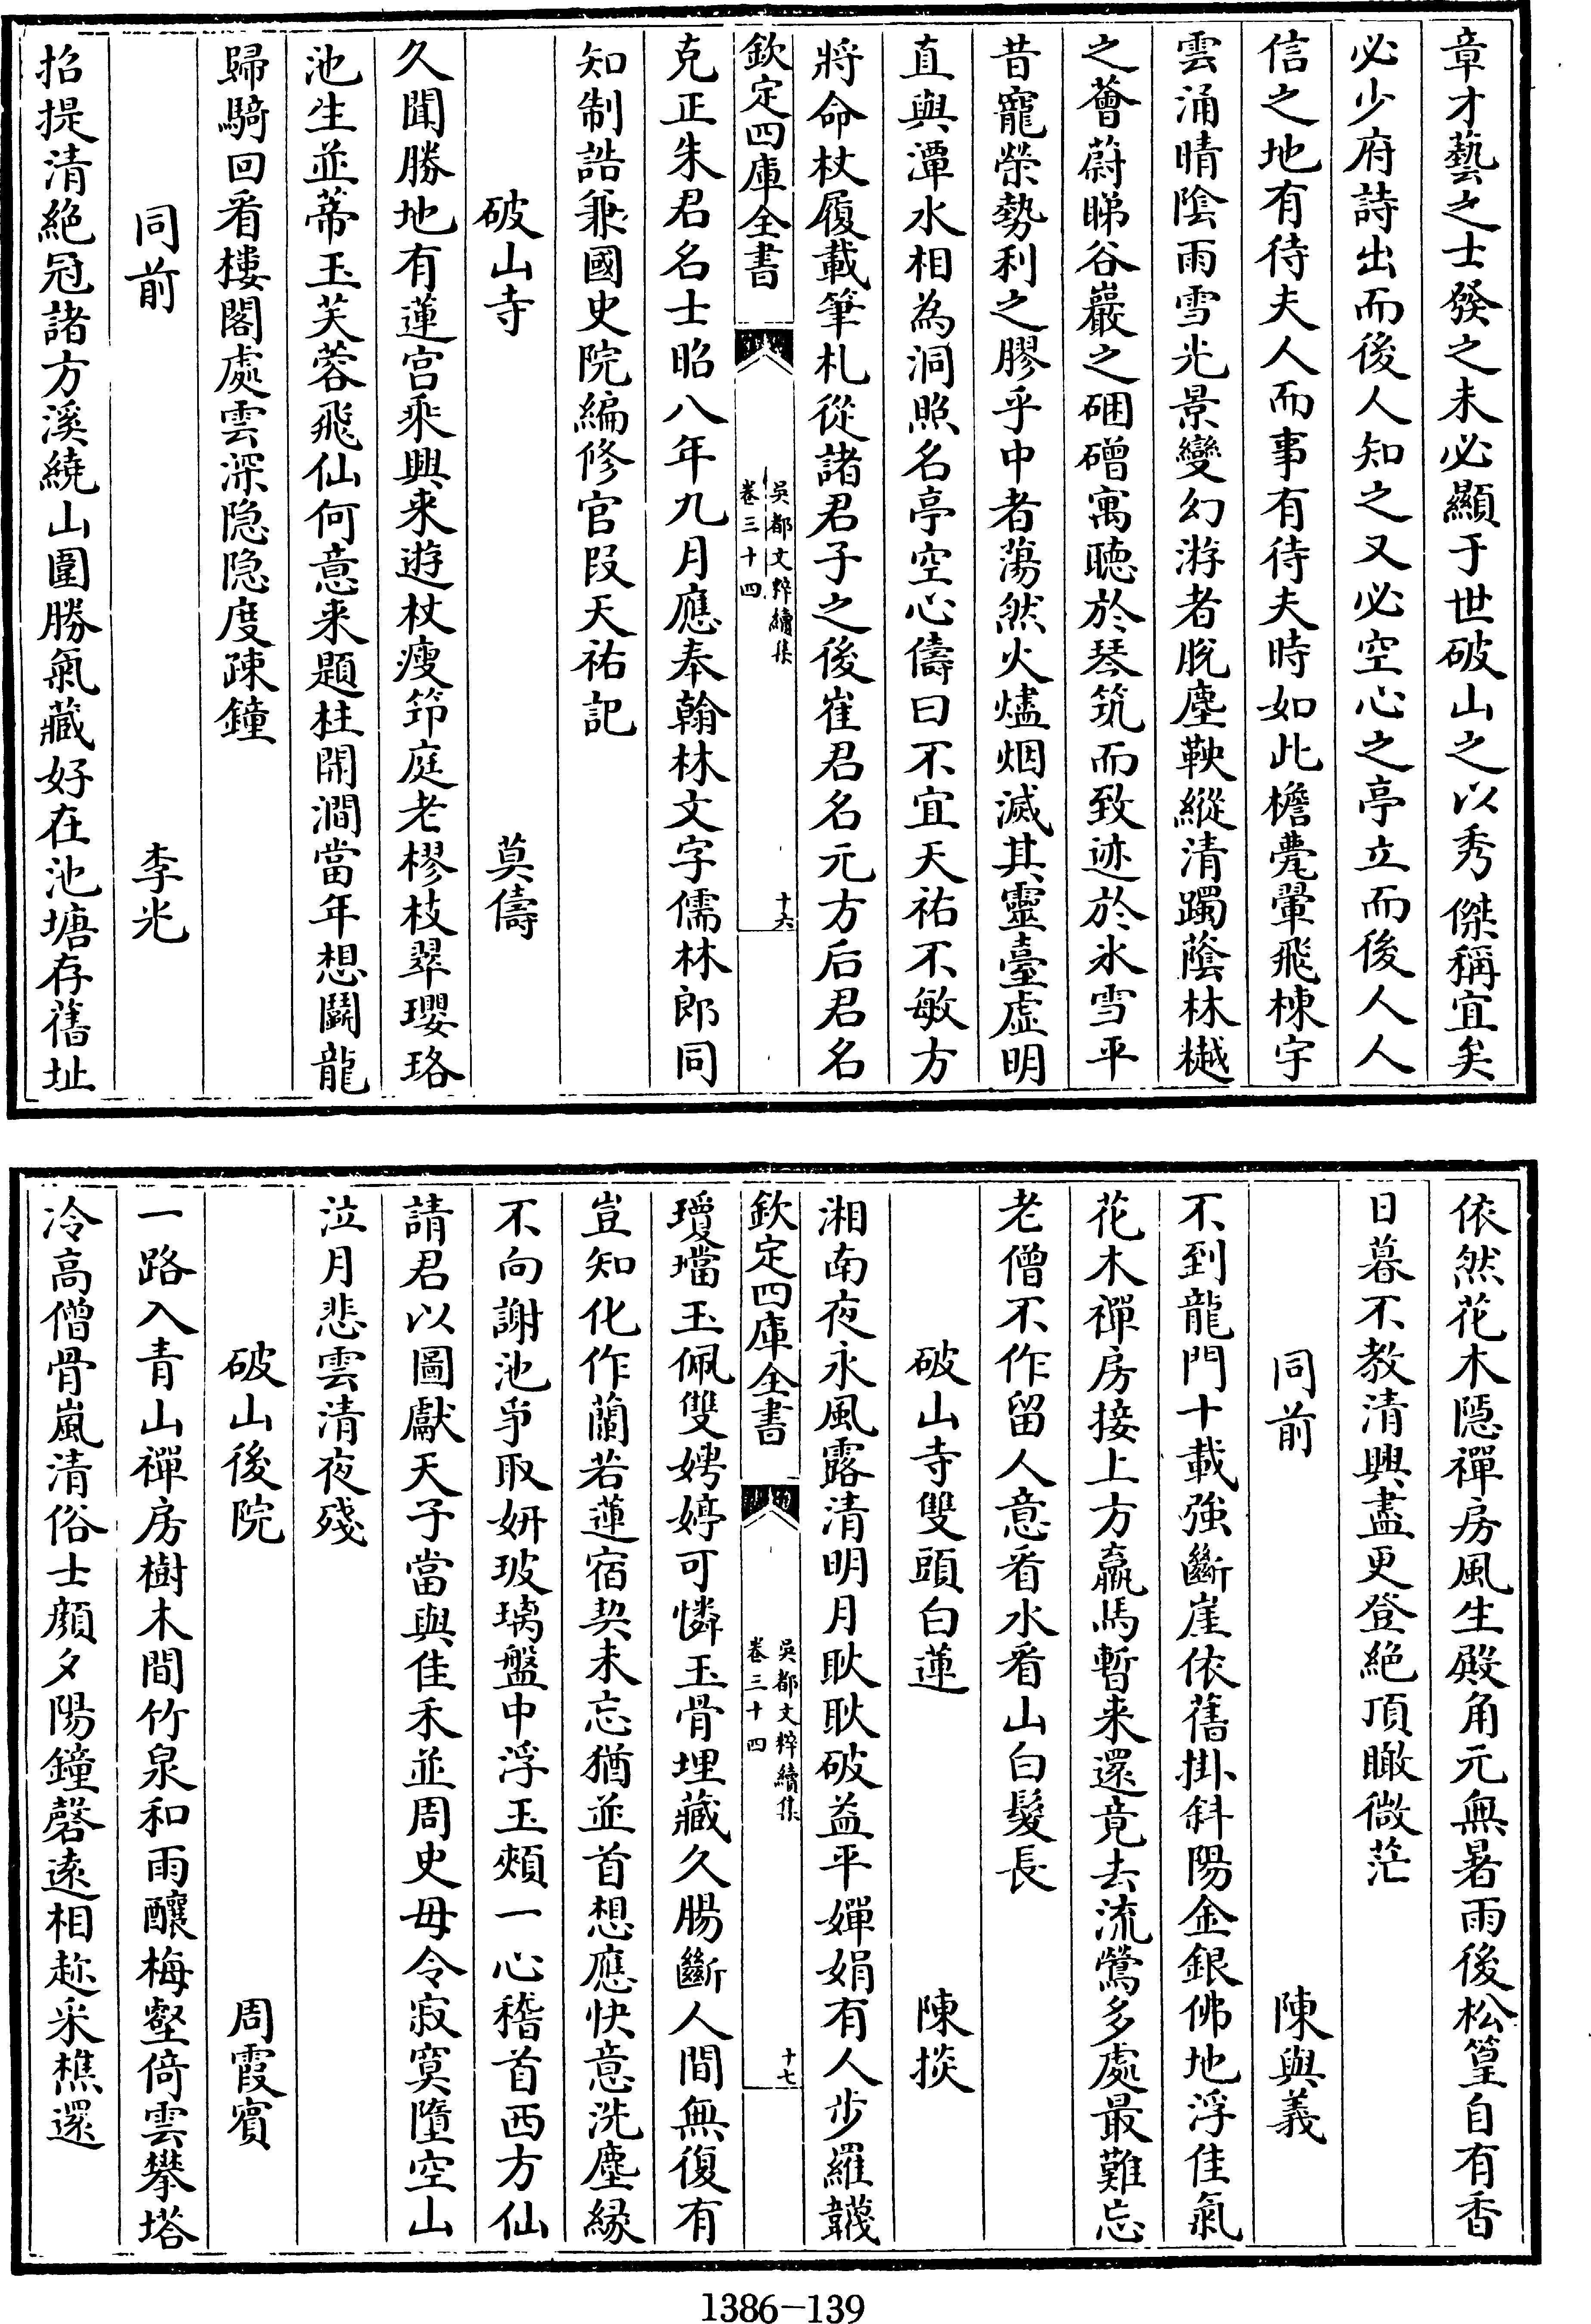 章才藝之士發之未必顯于世破山之以秀傑稱宜矣
必少府詩出而後人知之又必空心之亭立而後人人
信之地有待夫人而事有待夫時如此檐甍翬飛棟宇
雲涌晴陰雨雪光景變幻游者脫塵鞅縱清躅蔭林樾
之薈蔚睇谷巖之硱磳寓聽於琴筑而致迹於氷雪平
昔寵榮勢利之膠乎中者蕩然火燼烟滅其靈臺虛明
直與潭水相為洞照名亭空心儔曰不宜天祐不敏方
將命杖履載筆札從諸君子之後崔君名元方后君名
欽定四庫全書
吳都文粹續集
卷三十四
十六
克正朱君名士昭八年九月應奉翰林文字儒林郎同
知制誥兼國史院編修官段天祐記
破山寺 莫儔
久聞勝地有蓮宮乘興来遊杖瘦筇庭老樛枝翠瓔珞
池生並蒂玉芙蓉飛仙何意来題柱開澗當年想鬭龍
歸騎回看樓閣處雲深隐隐度疎鐘
同前 李光
招提清絶冠諸方溪繞山圍勝氣藏好在池塘存舊址
依然花木隱禪房風生殿角元無暑雨後松篁自有香
日暮不教清興盡更登絶頂瞰微茫
同前 陳與義
不到龍門十載強斷崖依舊掛斜陽金銀佛地浮佳氣
花木禪房接上方羸馬暫来還竟去流鶯多處最難忘
老僧不作留人意看水看山白髮長
破山寺雙頭白蓮 陳掞
湘南夜永風露清明月耿耿破益平嬋娟有人步羅韈
欽定四庫全書
吳都文粹續集
卷三十四
十七
瓊璫玉佩雙娉婷可憐玉骨埋藏久腸斷人間無復有
豈知化作蘭若蓮宿契未忘猶並首想應快意洗塵緣
不向謝池爭取妍玻璃盤中浮玉頰一心稽首西方仙
請君以圖獻天子當與佳禾並周史毋令寂寞墮空山
泣月悲雲清夜殘
破山後院 周霞賓
一路入青山禪房樹木間竹泉和雨釀梅壑倚雲攀塔
冷高僧骨嵐清俗士顔夕陽鐘磬遠相趂采樵還
1386-139